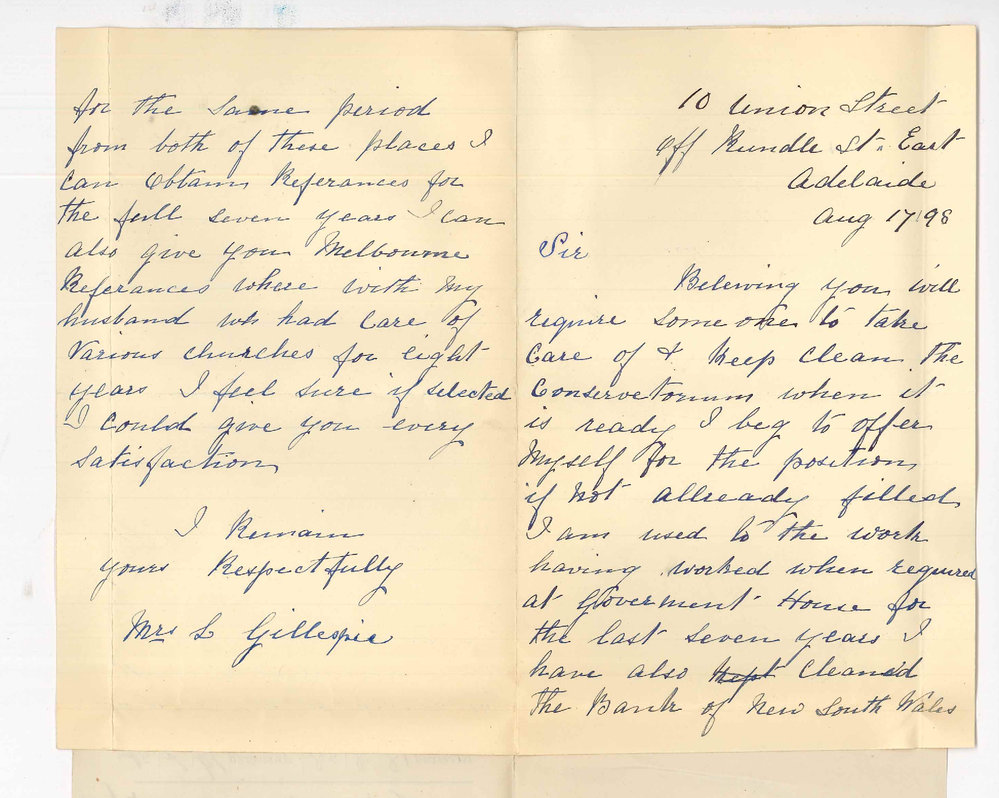 10 Union Street
Off Rundle St. East
Adelaide
Aug 17/98
Sir
Beleiving you will
require some one to take
Care of & keep clean the
Conservetorium when it
is ready I beg to offer
Myself for the position
if not allready filled
I am used to the work
having worked when required
at Goverment House for
the last seven years I
have also kept cleaned
the Bank of New South Wales
for the same period
from both of these places I
can Obtain Referances for
the full seven years I can
also give you Melbourne
Referances where with my
husband wh had Care of
Various churches for eight
years I feel sure if selected
I could give you every
Satisfaction
I Remain
yours Respectfully
Mrs L Gillespie